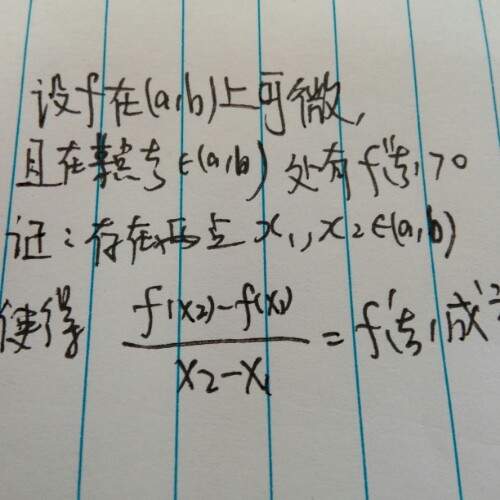 设f在(a,b)上可微,
且在某点ξ∈(a,b)处有f''(ξ)>0
证:存在两点x₁,x₂∈(a,b)
使得 \frac{f(x₂)-f(x₁)}{x₂-x₁} = f'(ξ)成立